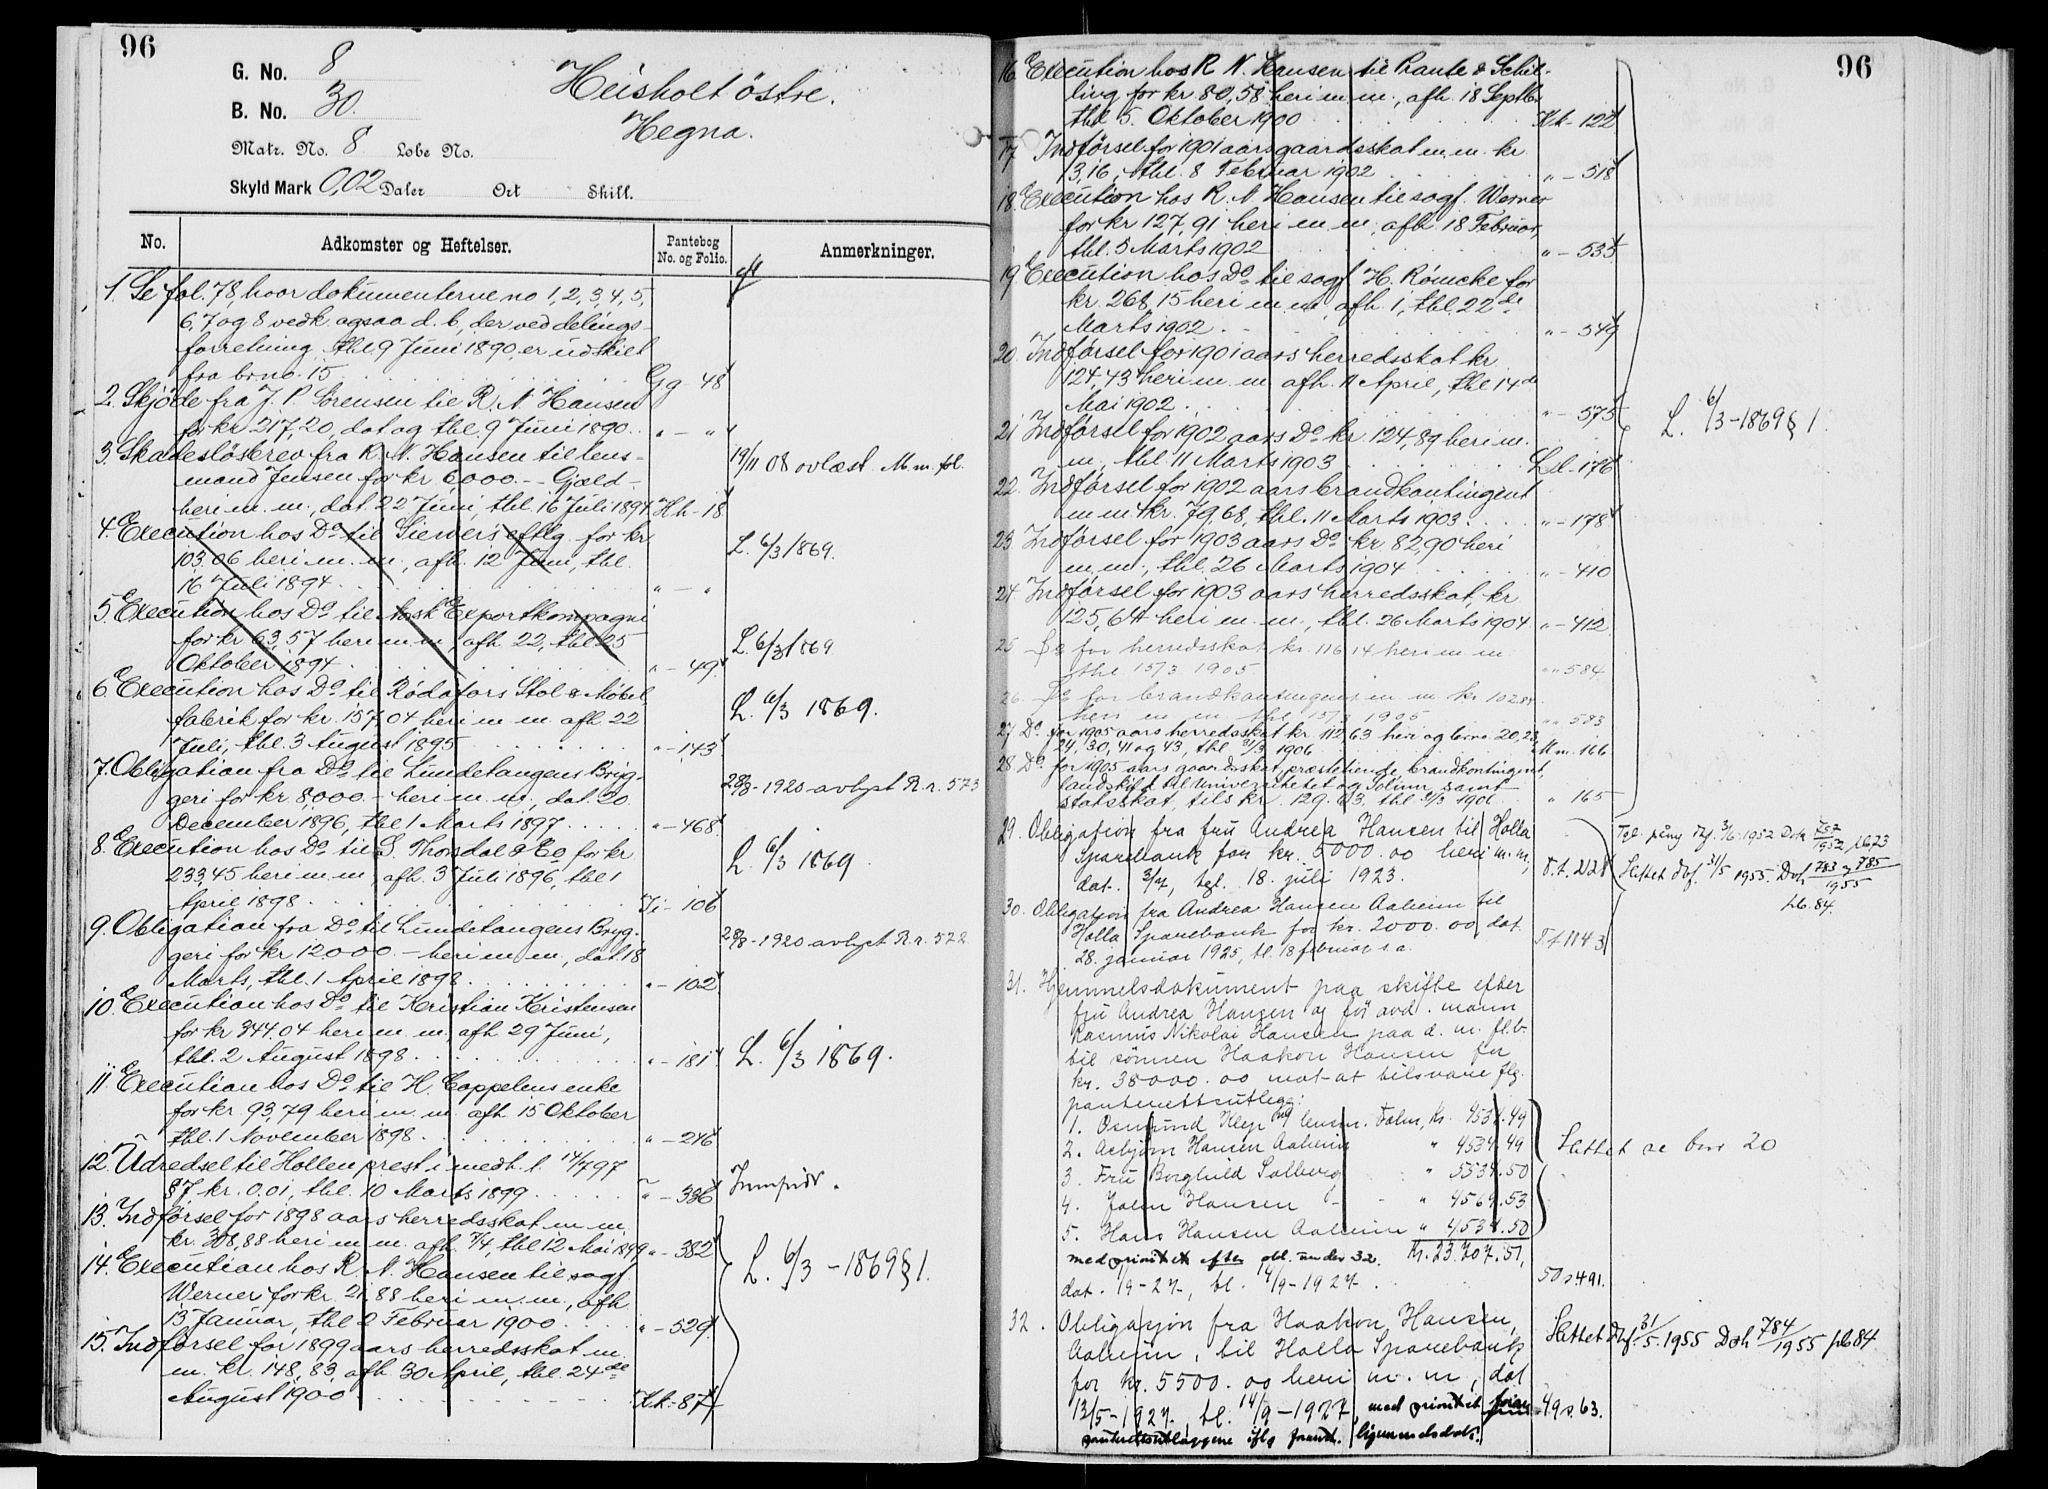 96
G. No. 8
B. No. 30.
Heisholt östre.
Hegna.
Matr. No. 8 Lobe No.
Skyld Mark 0,02 Daler Ort Skill.
No. Adkomster og Heftelser. Pantebog No. og Folio. Anmerkninger.
1. Se fol. 78, hvor dokumenterne no 1, 2, 3, 4, 5,
6, 7 og 8 vedk. ogsaa d. b., der ved delings-
forretning thl. 9 Juni 1890 er udskilt
fra br.no. 15 Gg - 48
2. Skjöde fra J. P. Sörensen til R. N. Hansen
for kr. 217,20, dat og thl. 9 Juni 1890. " - "
3. Skadeslösbrev fra R. N. Hansen til lens- 19/11 08 avlæst. M.m. fol.
mand Jensen for kr 6,000 - Gjæld -
heri m. m., dat. 22 Juni, thl. 16 Juli 1894 Hh - 18
4. Execution hos Do til Siewers eftlg. for kr L. 6/3 1869.
103.06 heri m. m., afh. 12 Juni, thl.
16 Juli 1894 " - "
5. Execution hos Do til Norsk Exportkompagni
for kr 63,57 heri m. m., afh. 22, thl 25 L. 6/3 1869
Oktober 1894 " - 49
6. Execution hos Do til Rödafors Stol & Möbel L. 6/3 1869.
fabrik for kr. 157,04 heri m. m. afh 22
Juli, thl. 3 August 1895 " - 143
7. Obligation fra Do til Lundetangens Bryg- 28/8 - 1920 avlyst R.r. 573
geri for kr. 8,000. - heri m. m., dat. 20
December 1896, thl 1 Marts 1897 " - 468
8. Execution hos Do til S. Thorsdal & Co for kr L. 6/3 1869.
233,45 heri m. m., afh. 3 Juli 1896, thl 1
April 1898 Ii - 106
9. Obligation fra Do til Lundetangens Bryg- 28/8 - 1920 avlyst R.r. 572
geri for kr 12000. - heri m. m., dat. 18
Marts, thl. 1 April 1898 " - 102
10. Execution hos Do til Kristian Kristensen
for kr 344.04 heri m. m., afh 29 Juni,
thl. 2 August 1898 " - 181 L. 6/3 1869.
11. Execution hos Do til H. Cappelens enke
for kr. 93,79 heri m. m. afh 15 Oktober
thl. 1 November 1898 " - 246
12. Udredsel til Hollen prest i medh. l. 14/7 97
§ 7 kr. 0.01, thl. 10 Marts 1899 " - 336
13. Indförsel for 1898 aars herredsskat m. m.
kr. 308,88 heri m. m. afh. 7/4, thl 12 Mai 1899 " - 382
14. Execution hos R. N. Hansen til sagf. L. 6/3 - 1869 § 1.
Werner for kr. 21.88 heri m. m., afh.
13 Januar, thl 2 Februar 1900 " - 529
15. Indförsel for 1899 aars herredsskat m.
m. kr. 148,83, afh 30 April, thl. 24de
August 1900 Kk - 87
96
16. Execution hos R. N. Hansen til Rante & Schil-
ling for kr 80,58 heri m. m., afh. 18 Septbr
thl 5. Oktober 1900 Kk - 122
17 Indförsel for 1901 aars gaardsskat m. m. kr
13,16, thl. 8 Februar 1902 " - 518
18. Execution hos R. N. Hansen til sagf. Werner
for kr 127,91 heri m. m., afh 18 Februar,
thl. 5 Marts 1902 " - 535
19 Execution hos Do til sagf H. Römcke for
kr. 268,15 heri m. m., afh. 1, thl 22de
Marts 1902 " - 549
20. Indförsel for 1901 aars herredsskat kr
124,43 heri m. m afh. 11 April, thl 14de
Mai 1902 " - 575 L. 6/3 - 1869 § 1.
21 Indförsel for 1902 aars Do kr. 124,89 heri m.
m., thl. 11 Marts 1903 Ll - 176
22. Indförsel for 1902 aars brandkontingent
m. m. kr. 79.68, thl. 11 Marts 1903. " - 178
23. Indförsel for 1903 aars Do kr 82,90 heri
m. m., thl. 26 Marts 1904 " - 410
24 Indförsel for 1903 aars herredsskat, kr
125,64 heri m. m., thl. 26 Marts 1904 " - 412
25 Do for herredsskat kr. 116 14 heri m m
thl 15/3 1905 " " 584
26. Do for brandkontingent m. m. kr 102.84
heri m m thl 15/3 1905 " " 583
27 Do for 1905 aars herredsskat kr 112,63 heri og brno 20, 23,
24, 30, 41 og 43, thl 31/3 1906 M m. 166
28 Do for 1905 aars gaardsskat, prestetiende, brandkontingent,
landskyld til Universitetet og Solum, samt
statsskat, tils kr. 129.63 thl. 31/3 1906 " 165
29. Obligation fra fru Andrea Hansen til Holla
Sparebank for kr. 5000.00 heri m. m, 1952
dat. 3/7, tgl. 18. juli 1923. P.t. 212 Slettet dbf. 31/5 1955. Dok 783 og 785/1955
Lb. 84.
30. Obligation fra Andrea Hansen Aaheim til
Holla Sparebank for kr. 2000.00 dat.
28. januar 1925, tl. 18 februar s.a. P.t 1143
31. Hjemmelsdokument paa skifte efter
fru Andrea Hansen og för avd. mann
Rasmus Nikolai Hansen paa d. m. fl. b.
til sönnen Haakon Hansen for
kr. 38000.00 mot at tilsvare flg.
panterettsutlegg:
1. Osmund Kleps Kr. 4534.49
2. Asbjörn Hansen Aaheim " 4534.49 Slettet se bnr 20
3. Fru Borghild Solberg " 5534.50
4. John Hansen - " 4569.53
5. Hans Hansen Aaheim " 4534.50
med prioritet efter obl. under 32. Kr. 23.707.51,
dat. 1/9 - 27, tl. 14/9 - 1927. 50 s 491.
32. Obligasjon fra Haakon Hansen, Slettet dbf. 31/5. 1955 Dok 784/1955 Lb 84
Aaheim, til Holla Sparebank
for kr. 5500.00 heri m. m, dat
12/5 - 1927, tl. 14/9 - 1927, med prioritet foran 49 s. 63.
panterettsutleggene iflg